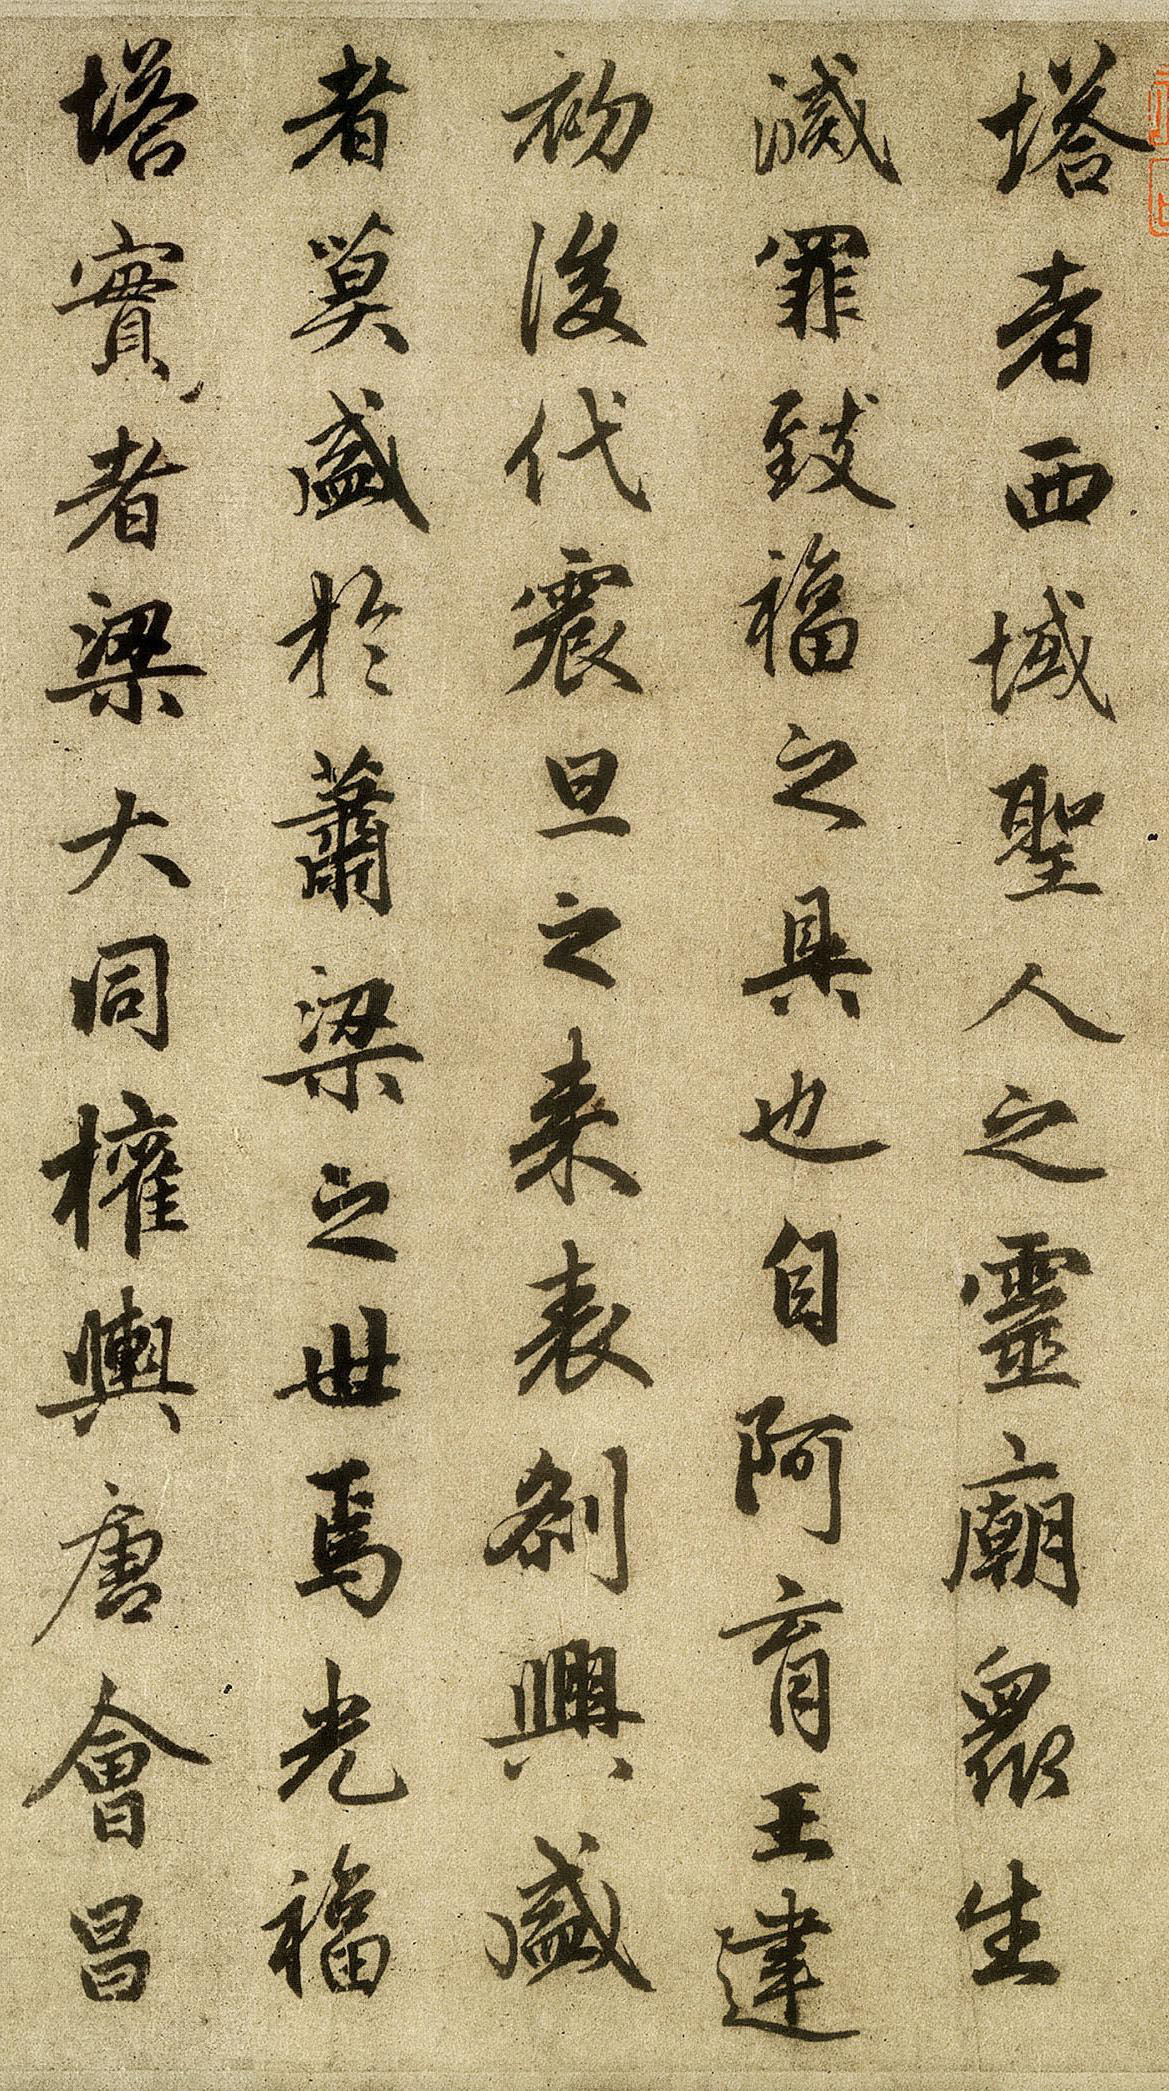 塔者西域聖人之靈廟衆生
滅罪致福之具也自阿育王建
初後代震旦之来表刹興盛
者莫盛於蕭梁之世焉光福
塔實者梁大同權輿唐會昌